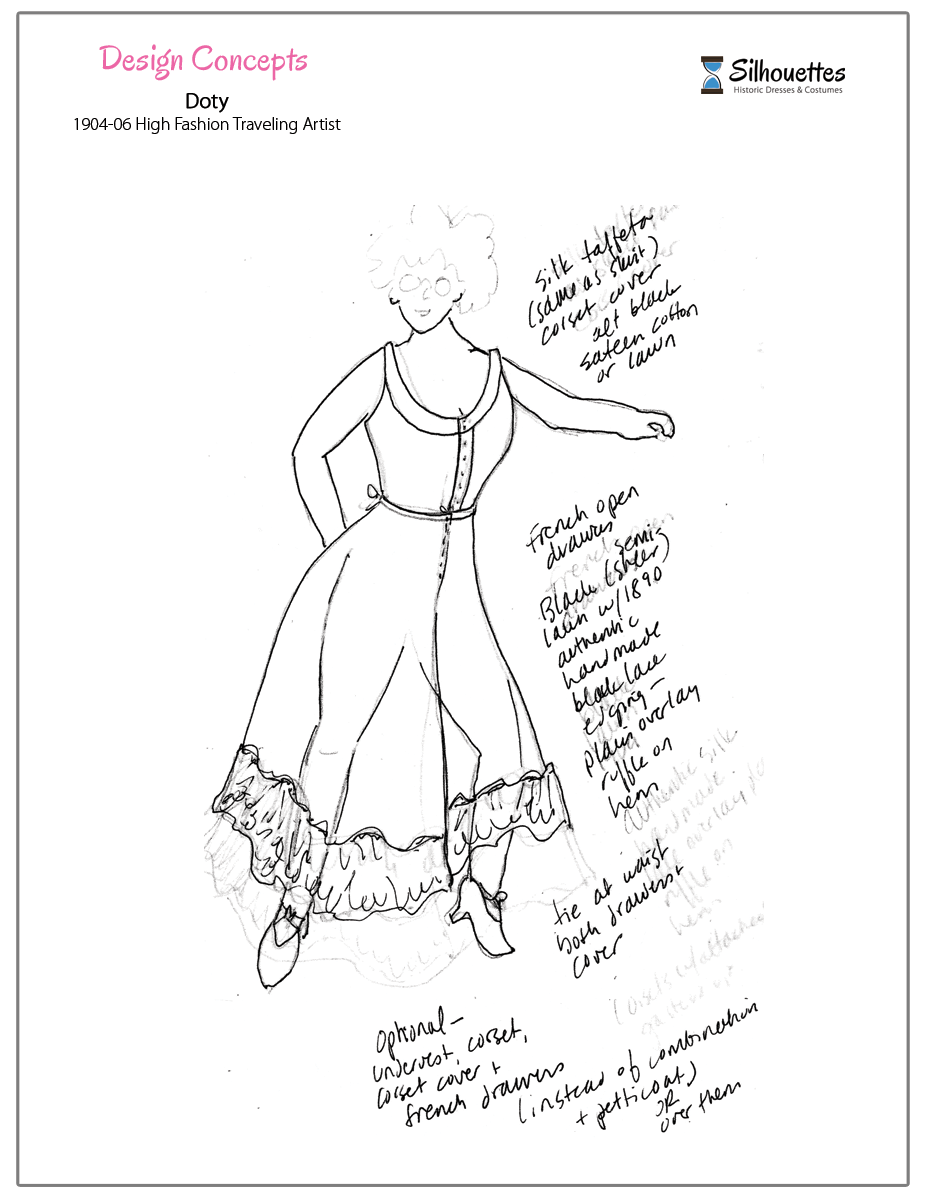 Design Concepts
Doty
1904-06 High Fashion Traveling Artist
Silhouettes
Historic Dresses & Costumes
silk taffeta
(same as skirt)
corset cover
alt black
sateen cotton
or lawn
French open
drawers
semi-
Black (sheer)
lawn w/1890
authentic
handmade
black lace
edging –
plain overlay
ruffle on
hem
tie at waist
both drawers +
cover
Optional –
undervest, corset,
corset cover +
french drawers
(instead of combination
+ petticoat)
OR
over them
authentic silk
handmade
overlay
ruffle on
hem
corsets w/attached
garters